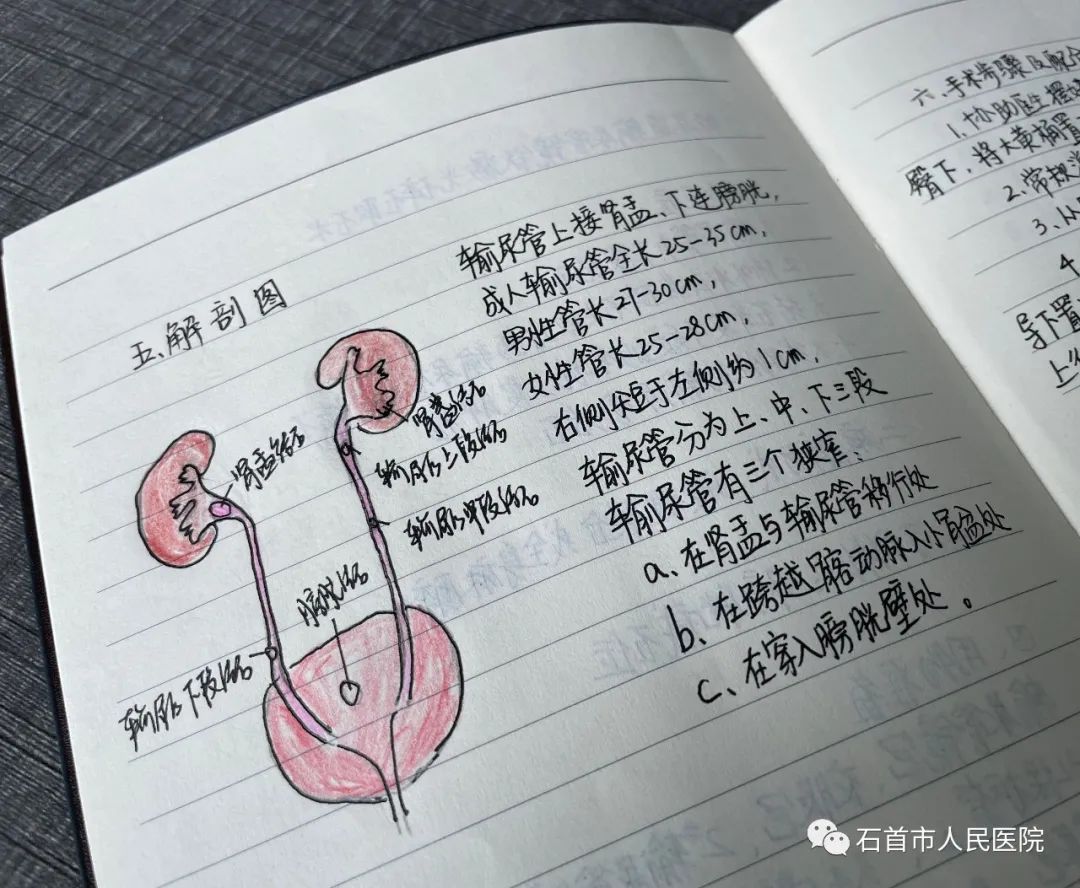 五、解剖图
输尿管上接肾盂、下连膀胱，
成人输尿管全长25-35cm，
男性管长27-30cm，
女性管长25-28cm，
右侧尖短于左侧约1cm，
输尿管分为上、中、下三段
输尿管有三个狭窄：
a、在肾盂与输尿管移行处
b、在跨越髂动脉入小骨盆处
c、在穿入膀胱壁处。
肾盏结石
肾盂结石
输尿管上段结石
输尿管中段结石
膀胱结石
输尿管下段结石
六、手术步骤及配合
1.协助医生摆
臀下，将大黄桶置
2.常规消
3.从
4
导下置
上
石首市人民医院